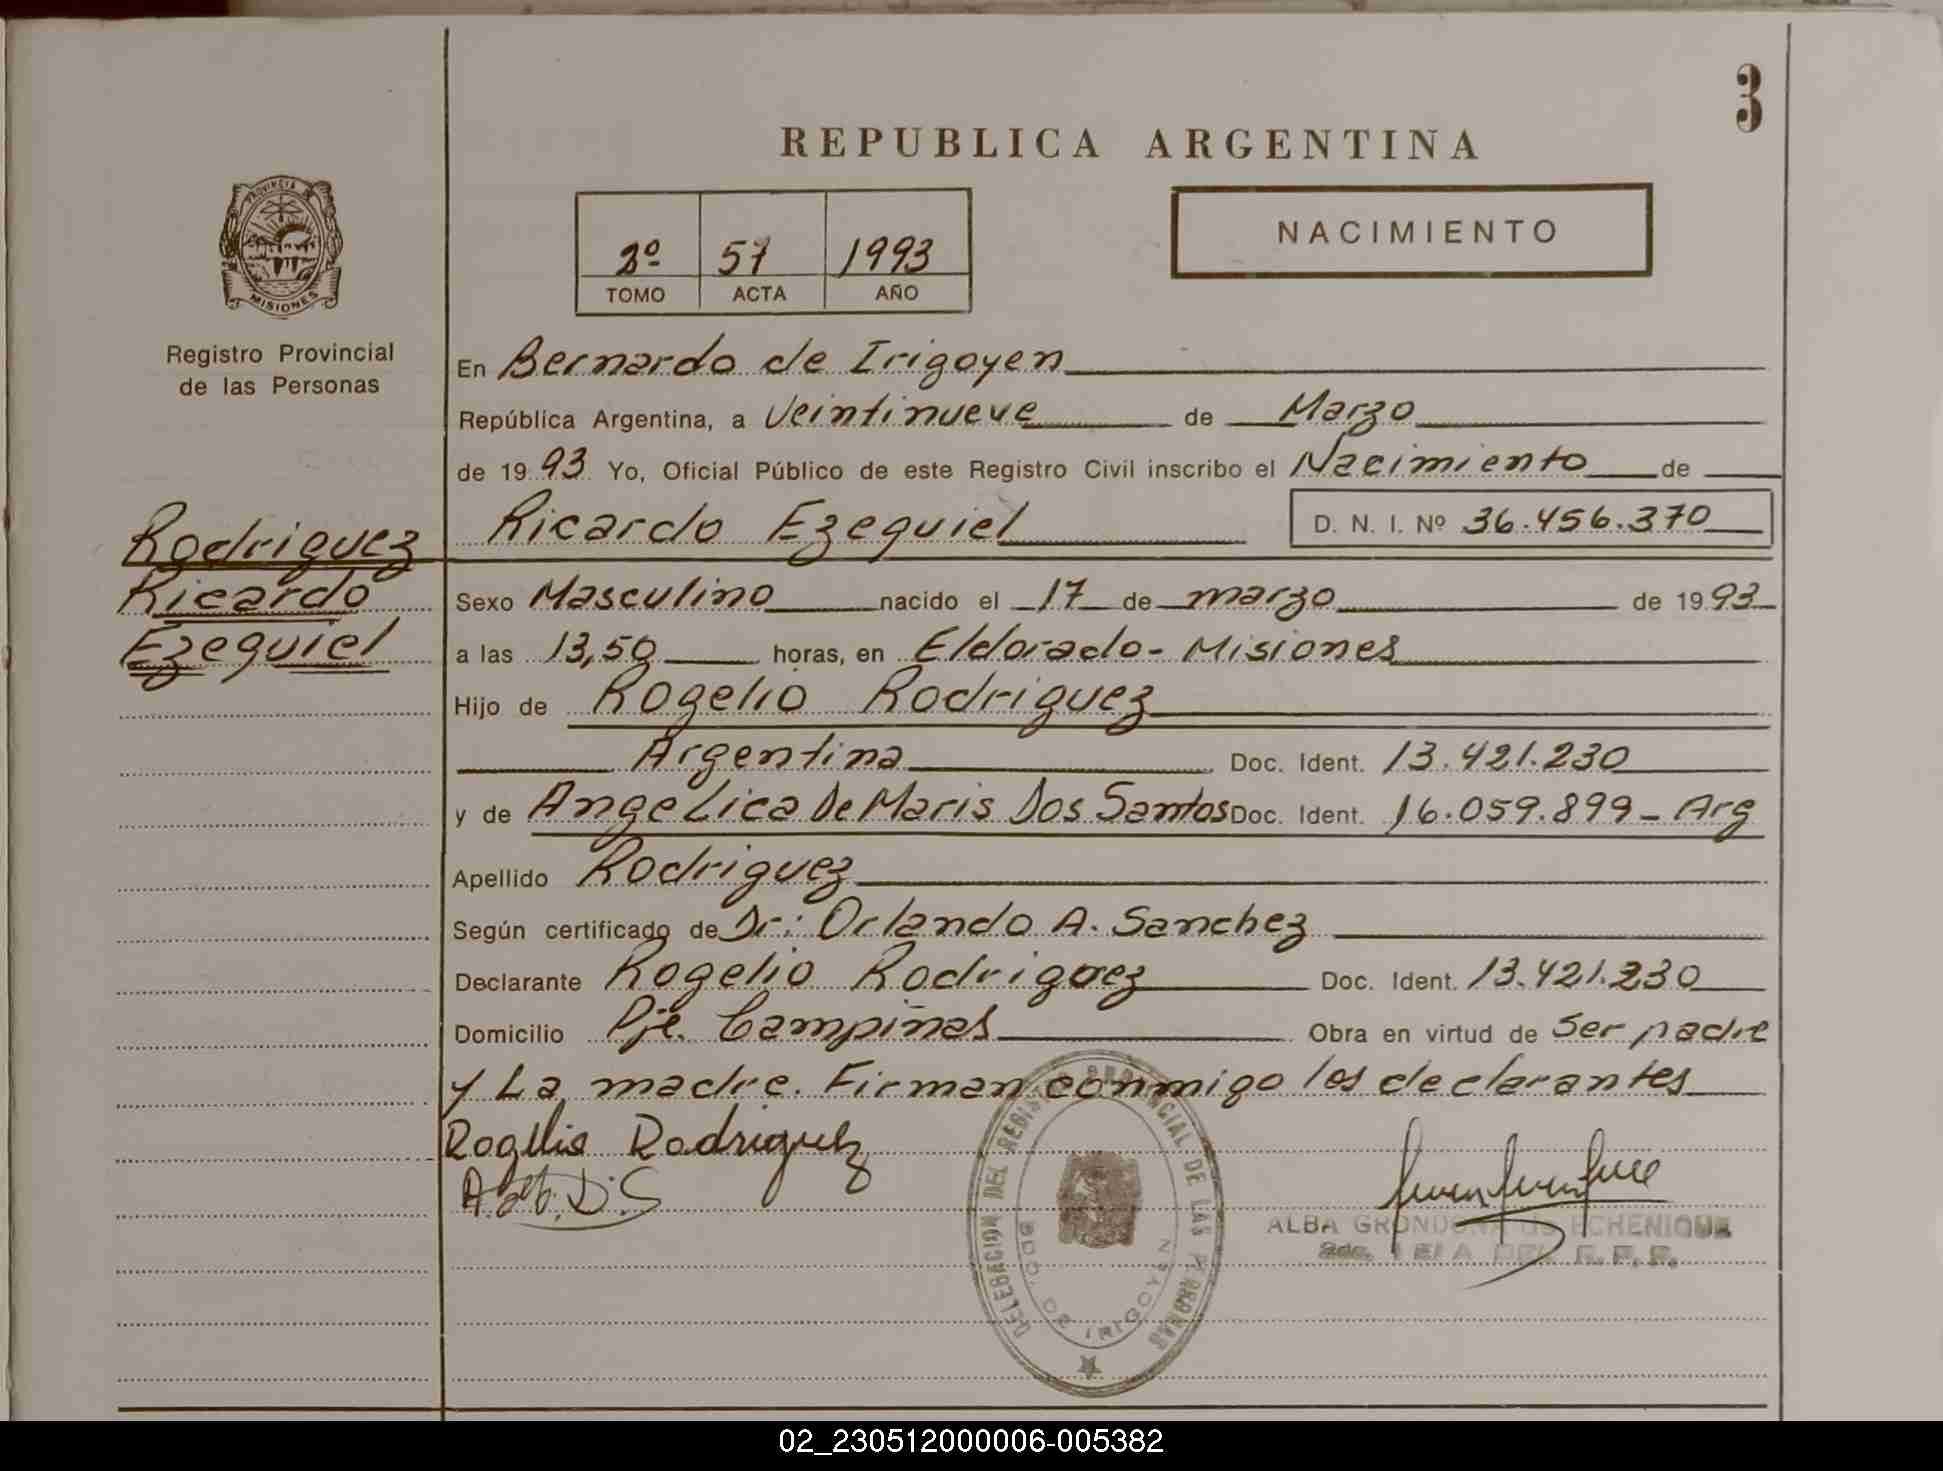 3
REPUBLICA ARGENTINA
PROVINCIA DE
MISIONES
Registro Provincial
de las Personas
2º 57 1993
TOMO ACTA AÑO
NACIMIENTO
En Bernardo de Irigoyen
República Argentina, a Veintinueve de Marzo
de 1993 Yo, Oficial Público de este Registro Civil inscribo el Nacimiento de
Ricardo Ezequiel D. N. I. Nº 36.456.370
Rodriguez
Ricardo
Ezequiel
Sexo Masculino nacido el 17 de marzo de 1993
a las 13,50 horas, en Eldorado - Misiones
Hijo de Rogelio Rodriguez
Argentina Doc. Ident. 13.421.230
y de Angelica De Maris Dos Santos Doc. Ident. 16.059.899 - Arg
Apellido Rodriguez
Según certificado de Dr: Orlando A. Sanchez
Declarante Rogelio Rodriguez Doc. Ident. 13.421.230
Domicilio Pje. Campiñas Obra en virtud de Ser padre
y La madre. Firman conmigo los declarantes
Rogelio Rodriguez
DELEGACION DEL REGISTRO PROVINCIAL DE LAS PERSONAS
BDO. DE IRIGOYEN
ALBA GRONDONA de ECHENIQUE
02_230512000006-005382